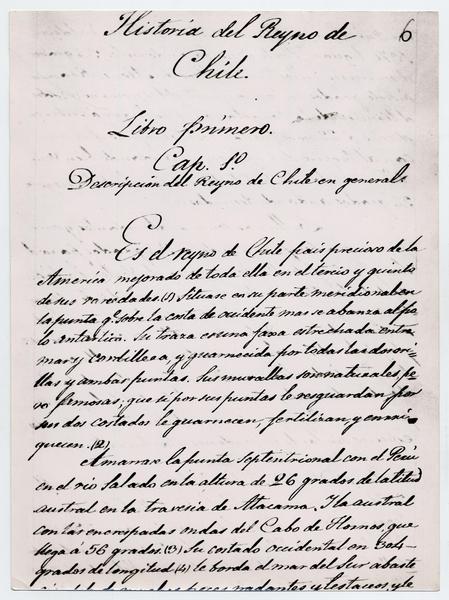 Historia del Reyno de 6
Chile.
Libro primero.
Cap. 1º
Descripcion del Reyno de Chile en general.
Es el reyno de Chile pais precioso de la
America mejorado de toda ella en el tercio y quinto
de sus variedades.(1) Situase en su parte meridional en
la punta q.e sobre la costa de ocidente mas se abanza al po-
lo antartico. Su traza es una faxa estrechada entre
mar y cordillera, y guarnecida por todas las dos ori-
llas y ambas puntas. Sus murallas son naturales, pe-
ro famosas; que si por sus puntas le resguardan por
sus dos costados le guarnecen, fertilizan y enrri-
quecen.(2)
Amarrase la punta septentrional con el Perú
en el rio Salado en la altura de 26 grados de latitud
austral en la travesia de Atacama. Y la austral
con las encrespadas ondas del Cabo de Hornos, que
llega á 56 grados.(3) Su costado occidental en 304
grados de longitud (4) le borda el mar del Sur abaste
peces nadantes y testaceos, y le